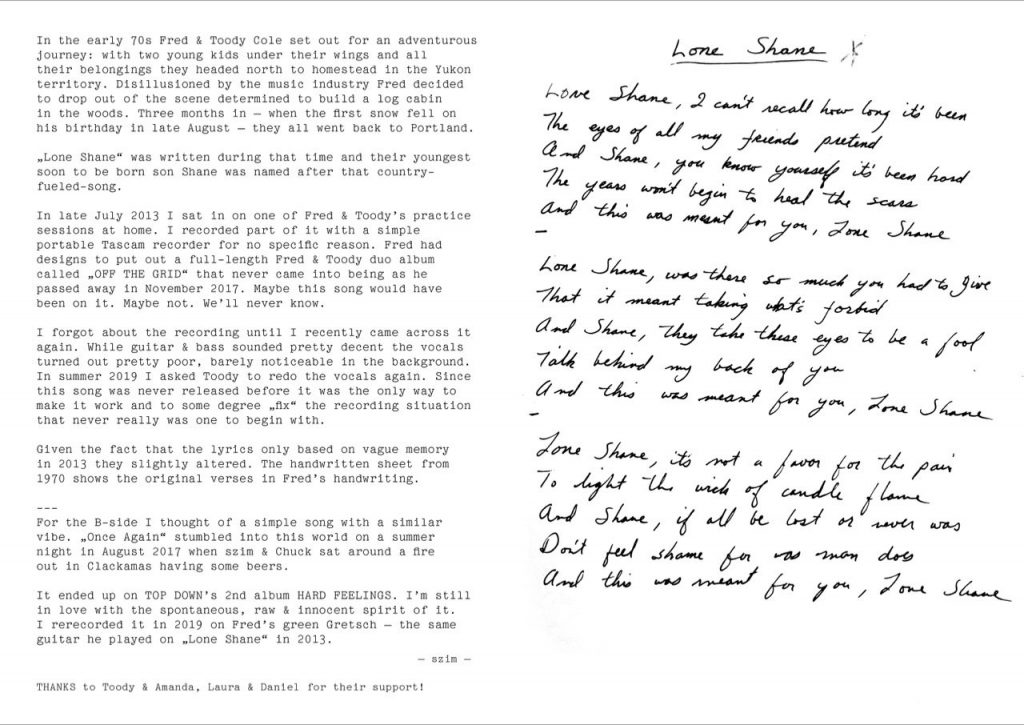 In the early 70s Fred & Toody Cole set out for an adventurous
journey: with two young kids under their wings and all
their belongings they headed north to homestead in the Yukon
territory. Disillusioned by the music industry Fred decided
to drop out of the scene determined to build a log cabin
in the woods. Three months in — when the first snow fell on
his birthday in late August — they all went back to Portland.
„Lone Shane“ was written during that time and their youngest
soon to be born son Shane was named after that country-
fueled-song.
In late July 2013 I sat in on one of Fred & Toody's practice
sessions at home. I recorded part of it with a simple
portable Tascam recorder for no specific reason. Fred had
designs to put out a full-length Fred & Toody duo album
called „OFF THE GRID“ that never came into being as he
passed away in November 2017. Maybe this song would have
been on it. Maybe not. We'll never know.
I forgot about the recording until I recently came across it
again. While guitar & bass sounded pretty decent the vocals
turned out pretty poor, barely noticeable in the background.
In summer 2019 I asked Toody to redo the vocals again. Since
this song was never released before it was the only way to
make it work and to some degree „fix“ the recording situation
that never really was one to begin with.
Given the fact that the lyrics only based on vague memory
in 2013 they slightly altered. The handwritten sheet from
1970 shows the original verses in Fred's handwriting.
---
For the B-side I thought of a simple song with a similar
vibe. „Once Again“ stumbled into this world on a summer
night in August 2017 when szim & Chuck sat around a fire
out in Clackamas having some beers.
It ended up on TOP DOWN's 2nd album HARD FEELINGS. I'm still
in love with the spontaneous, raw & innocent spirit of it.
I rerecorded it in 2019 on Fred's green Gretsch — the same
guitar he played on „Lone Shane“ in 2013.
— szim —
THANKS to Toody & Amanda, Laura & Daniel for their support!
Lone Shane
Lone Shane, I can't recall how long it's been
The eyes of all my friends pretend
And Shane, you know yourself it's been hard
The years won't begin to heal the scars
And this was meant for you, Lone Shane
Lone Shane, was there so much you had to give
That it meant taking what's forbid
And Shane, they take these eyes to be a fool
Talk behind my back of you
And this was meant for you, Lone Shane
Lone Shane, it's not a favor for the pair
To light the wick of candle flame
And Shane, if all be lost or never was
Don't feel shame for was man does
And this was meant for you, Lone Shane